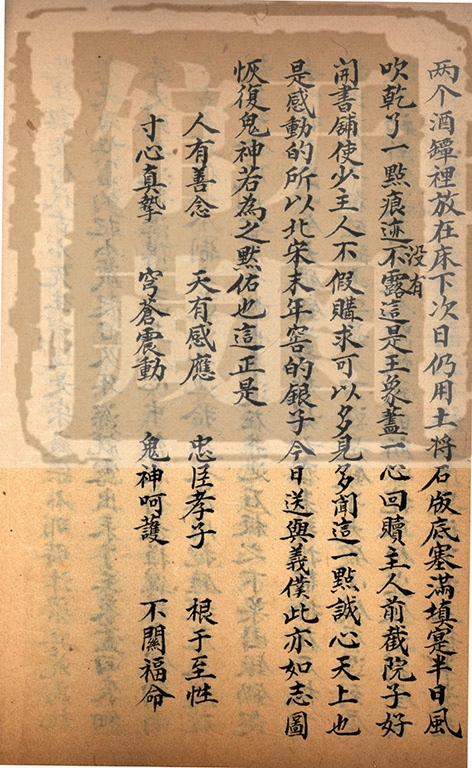 两个酒罈裡放在床下次日仍用土将石版底塞滿填寔半日風
吹乾了一點痕迹不露這是王象蓋一心回贖主人前截院子好
没有
開書鋪使少主人不假購求可以多見多聞這一點誠心天上也
是感動的所以北宋末年窖的銀子今日送與義僕此亦如志圖
恢復鬼神若為之黙佑也這正是
人有善念 天有感應 忠臣孝子 根于至性
寸心真摯 穹蒼震動 鬼神呵護 不關福命